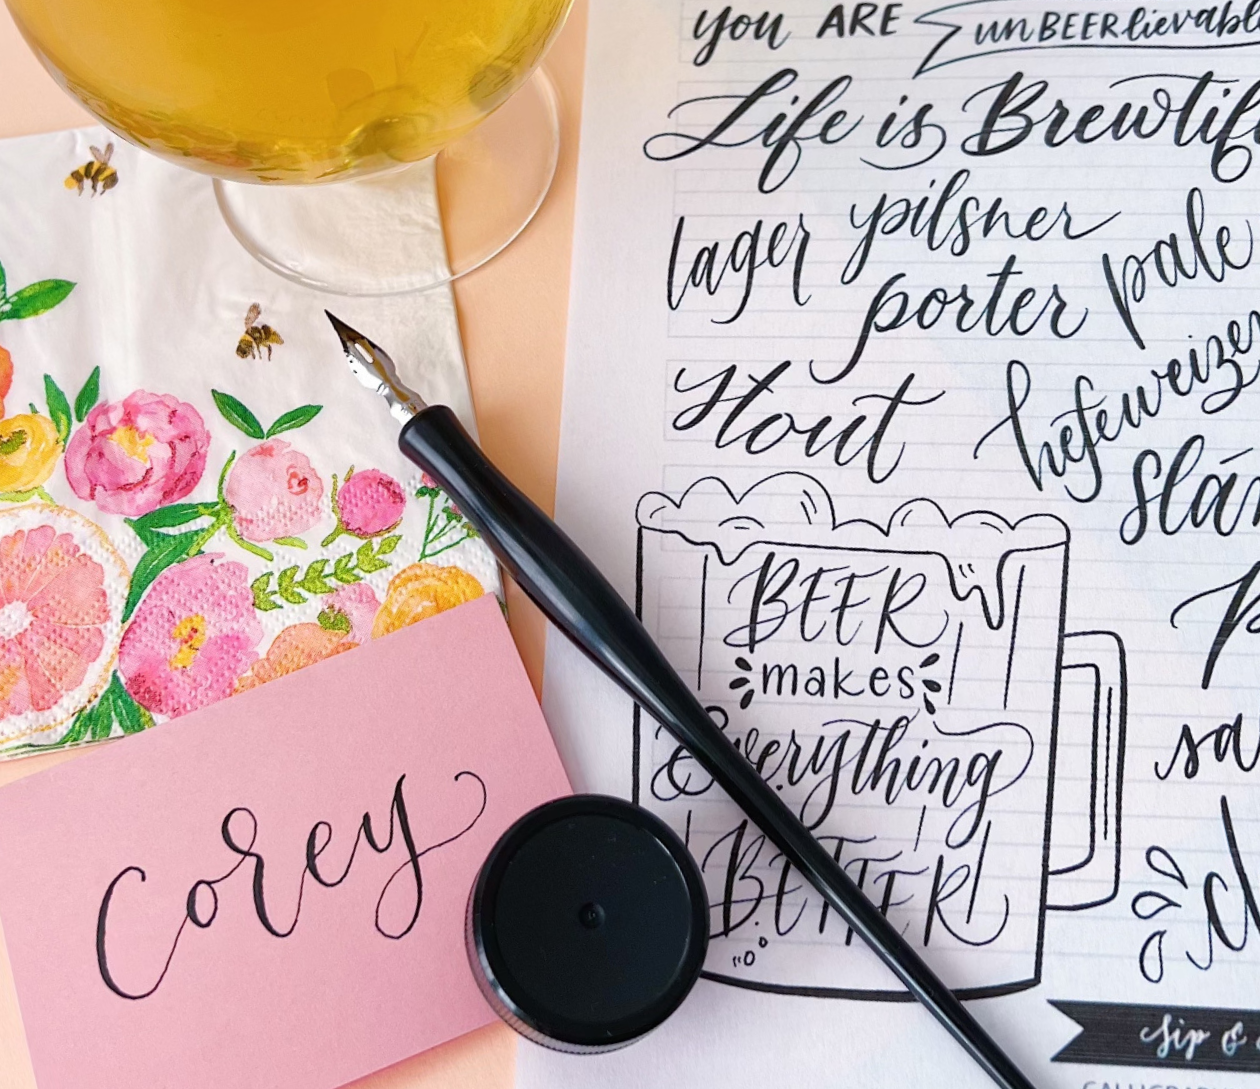 you ARE unBEERlievabl
Life is Brewtif
lager pilsner pale
porter
stout hefeweizen
Slá
BEER
makes
Everything
BETTER
sa
Corey
Sip &